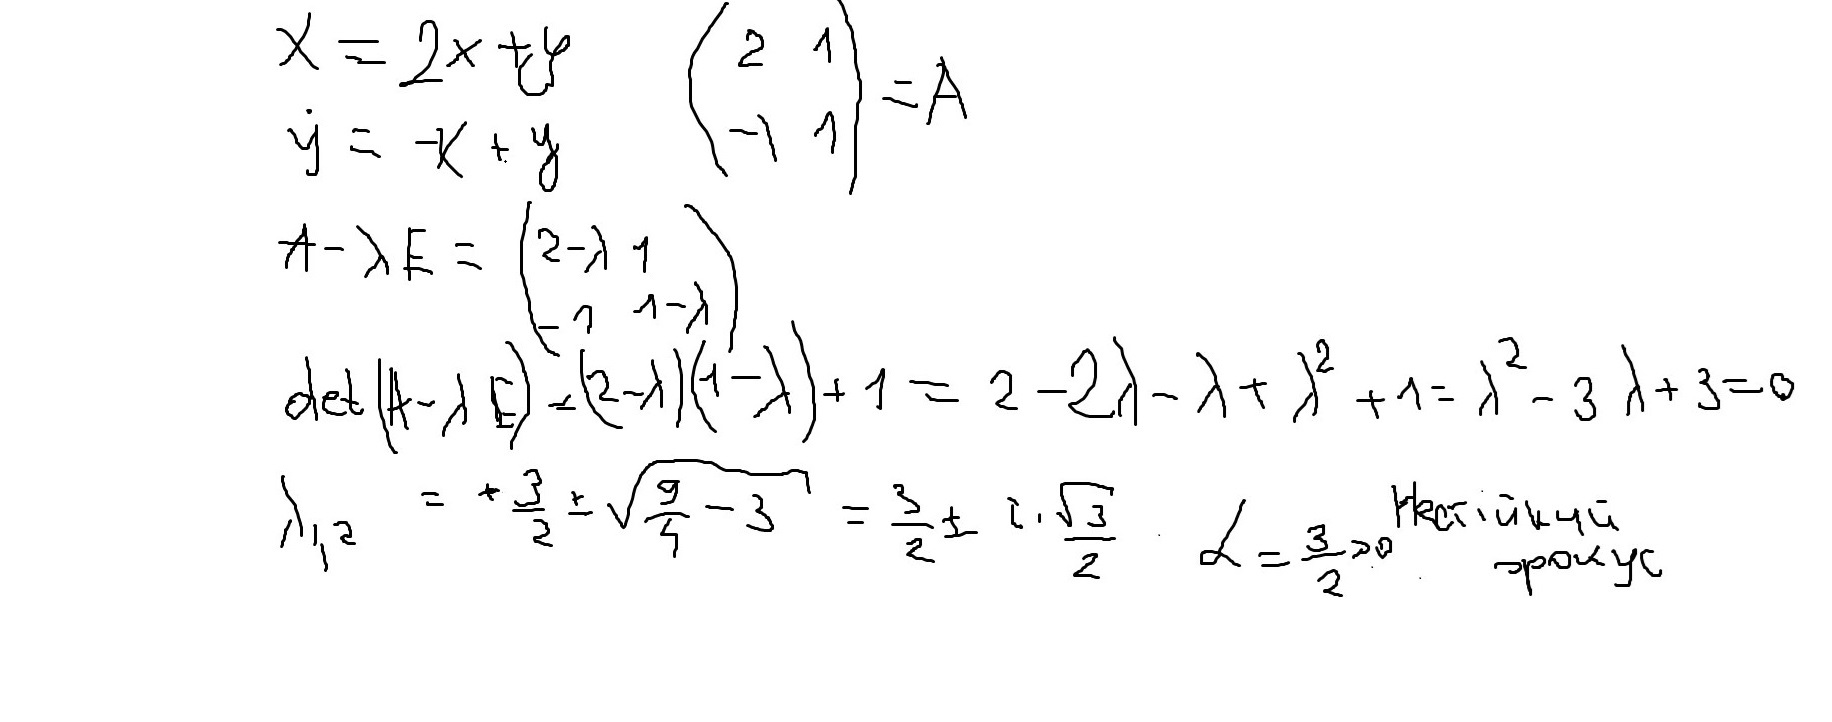 x = 2x + y
ẏ = -x + y
(2 1
-1 1) = A
A - λE = (2-λ 1
-1 1-λ)
det(A-λE) = (2-λ)(1-λ)+1 = 2-2λ-λ+λ²+1 = λ²-3λ+3=0
λ₁,₂ = +3/2 ± √(9/4 - 3) = 3/2 ± i·√3/2 α = 3/2 >0 Нестійкий
фокус